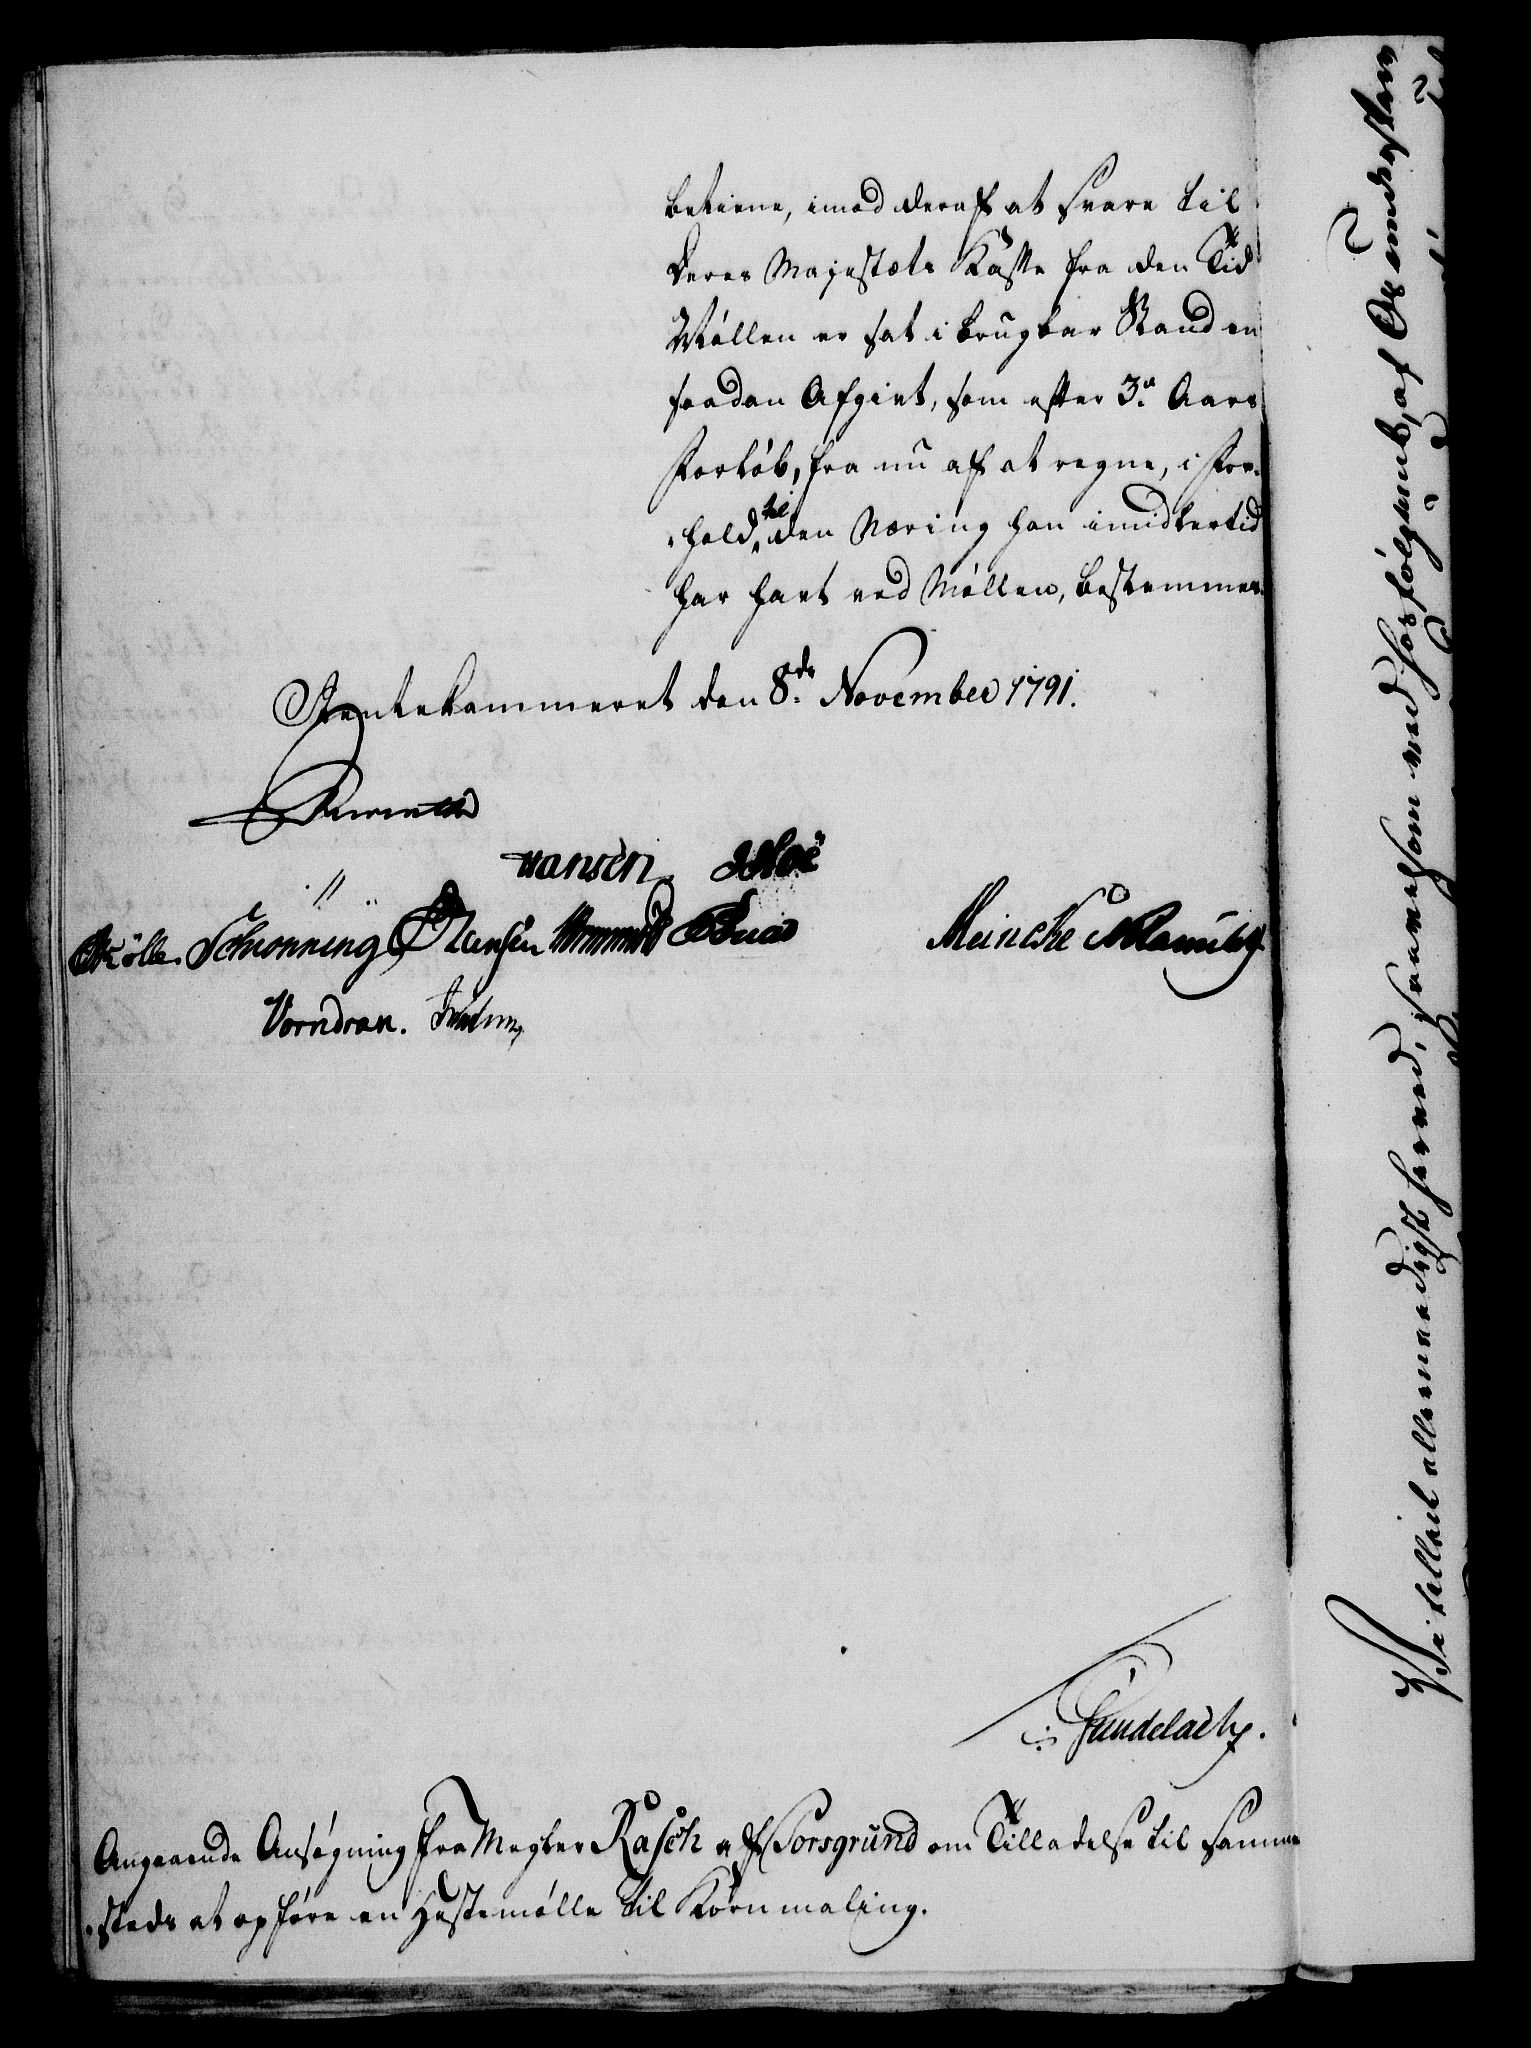 betiene, imod deraf at svare til
Deres Majestæts Kasse fra den Tid
Møllen er sat i brugbar Stand en
saadan Afgivt, som efter 3de Aars
Forløb, fra nu af at regne, i For-
-hold til den Næring han imidlertid
har havt ved Møllen, bestemmes.
Rentekammeret den 8de November 1791.
Hansen
Schrønning Hansen Meincke
Vorndran.
Gundelach.
Angaaende Ansøgning fra Megler Rasch af Porsgrund om Tilladelse til samme
-steds at opføre en Hestemølle til Kornmaling.
Vi tillad allernaadigst herved, saavelsom ved hosfølgende, af Os underskrevne